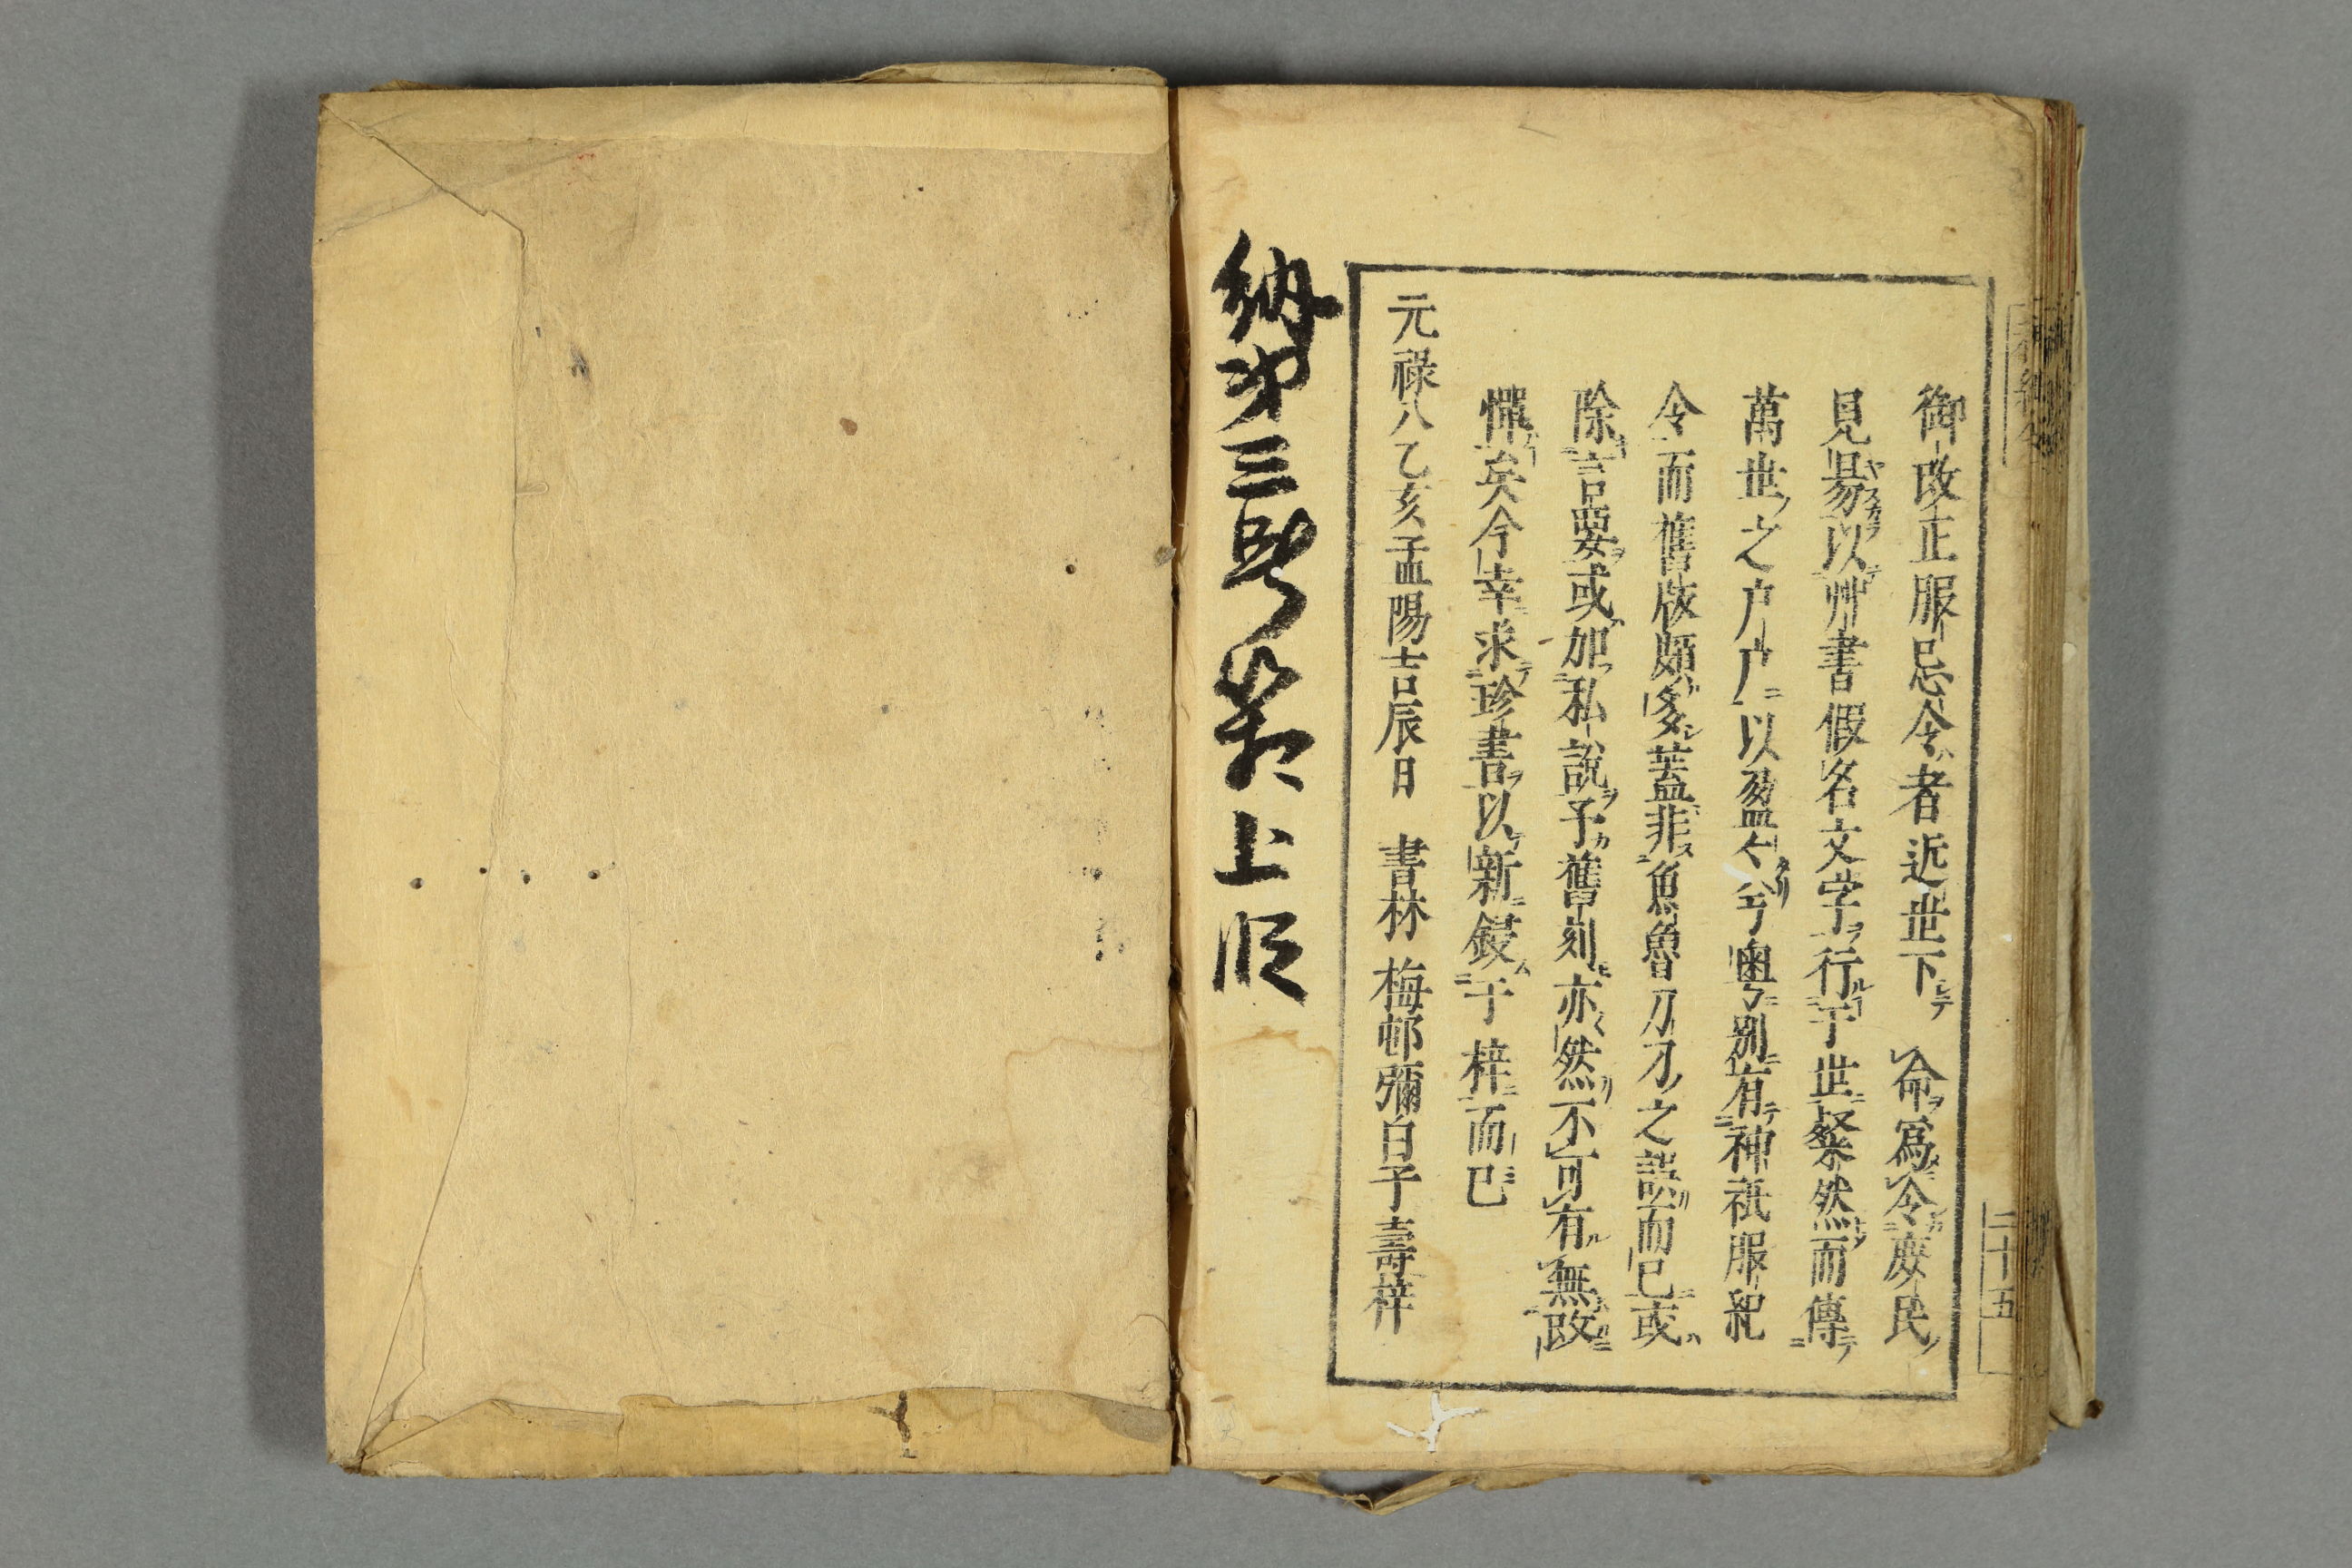 御改正服忌令者近世下　命爲令庶民
見易以艸書假名文字行于世粲然而傳
萬世之戸戸以盈今兮粤別有神祇服紀
令而舊版頗多蓋非魚魯刀刁之誤而已或
除言要或加私説予舊刻亦然不可有無改
憚矣今幸求珍書以新鋟于梓而已
元禄八乙亥孟陽吉辰日　書林　梅邨彌白子壽梓
二十五